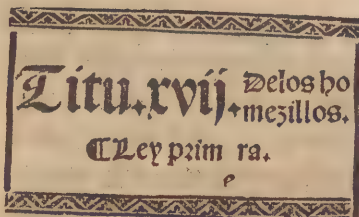 Titu.xvij. Delos ho
mezillos.
¶Ley prim ra.
e